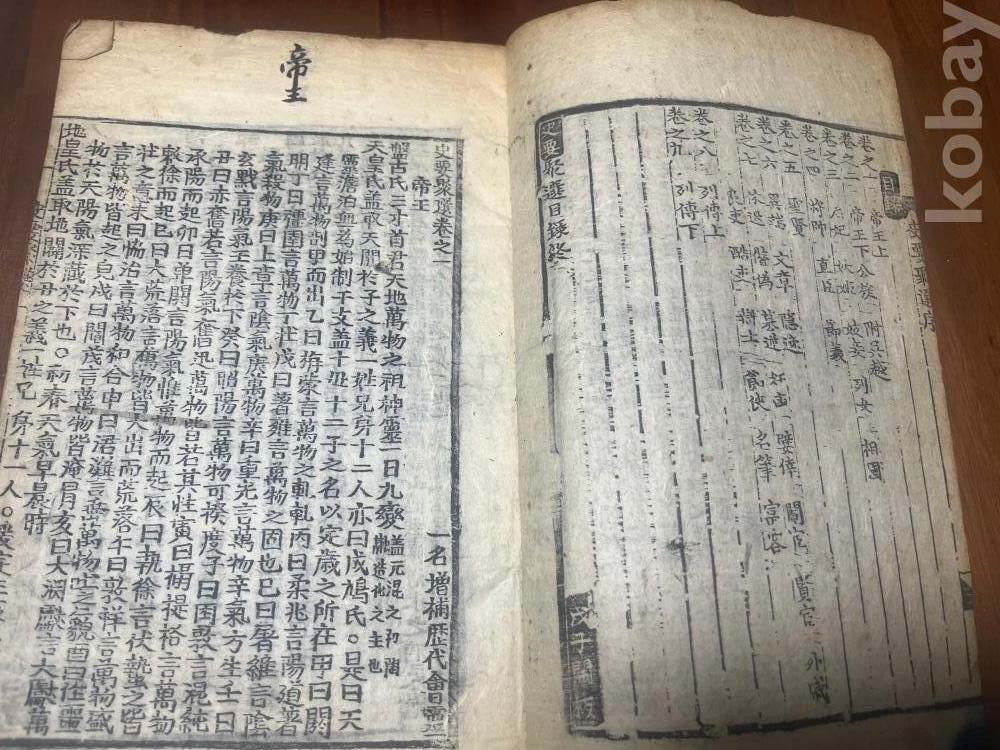 目錄
卷之一 帝王上
卷之二 帝王下 公族 附吳越
卷之三 后妃 妖姬 姬妾 列女 相國
卷之四 將帥 直臣 節義
卷之五 聖賢 文章 隱逸
卷之六 異端
卷之七 良吏 酷吏 辯士 豪俠 名筆 富客
卷之八 列傳上
卷之九 列傳下
史要聚選目錄終
戊子開板
帝王
史要聚選卷之一 一名增補歷代會靈
帝王
盤古氏三才首君天地萬物之祖神靈一日九變 盖元混之初陶融造化之主也
天皇氏盖取天開於子之義一姓兄弟十二人亦曰成鳩氏。是曰天
靈澹泊無爲始制干支盖十母十二子之名以定歲之所在甲曰閼
逢言萬物剖甲而出乙曰旃蒙言萬物之軋軋丙曰柔兆言陽道著
明丁曰彊圉言萬物丁壯戊曰著雍言萬物之固也己曰屠維言陰
氣殺物庚曰上章言陰氣庚萬物辛曰重光言萬物辛氣方生壬曰
玄黓言陽氣壬養於下癸曰昭陽言萬物可揆度子曰困敦言混純
丑曰赤奮若言陽氣奮迅萬物皆若其性寅曰攝提格言萬物
承陽而起卯曰單閼言陽氣惟萬物而起辰曰執徐言伏蟄之皆
敷徐而起巳曰大荒落言萬物皆大出而荒落午曰敦牂言萬物盛
壯之意未曰協洽言萬物和合申曰涒灘言萬物吐之貌酉曰作噩
言萬物皆起之皃戌曰閹茂言萬物皆淹冐亥曰大淵獻言大獻萬
物於天陽氣深藏於下也。初齊天氣早晨時
地皇氏盖取地闢於丑之義一姓兄弟十一人。
kobay